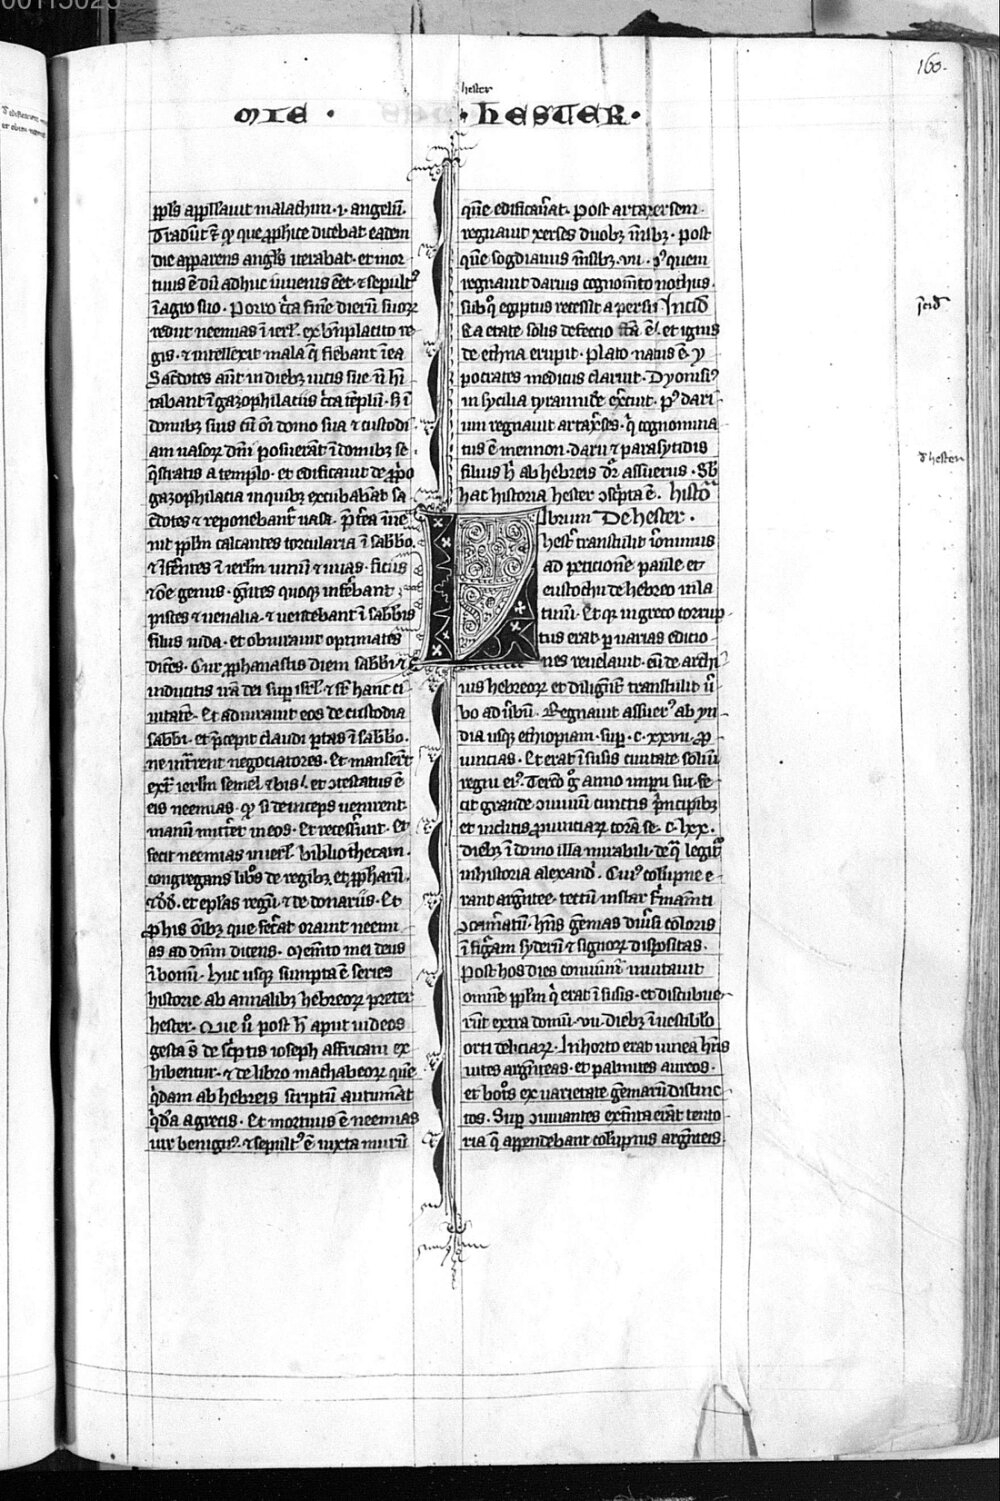 00113023
160.
hester
MIE · · HESTER ·
pp̄ls app̄llauit malachim · i · angelū.
Tradūt ē qͥ que ꝓphice dicebat eadem
die apparens angl̄s iterabat · et mor
tuus ē dū adhuc iuuenis eēt · ⁊ sepultꝰ
ī agro suo · Porro c̄ca finē dierū suoꝝ
rediit neemias ī ierl̄. ex bn̄placito re
gis · ⁊ intellexit mala q̄ fiebant ī ea
Sac̄dotes aūt in diebꝫ uicis sue n̄ hī
tabant ī gazophilaciis c̄ca tēplū · s̄ ī
domibꝫ suis
am uasoꝝ dn̄i posuerāt ī domibꝫ se
q̄stratis a templo · et edificauit de ꝓp̄o
gazophilacia in quibꝫ excubabāt sa
c̄dotes ⁊ reponebant̄ uasa · p̄t̄ea īue
nit pp̄lm calcantes torcularia ī sabb̄o.
⁊ īferentes ī ierl̄m uinū ⁊ uuas · ficus
⁊ om̄e genus · gētes quoqꝫ inferebant
pisces ⁊ uenalia · ⁊ uendebant ī sabb̄is
filiis iuda · et obiurauit optimates
dicēs · Cur ꝓphanastis diem sabbi ⁊
inducitis irā dei suꝑ isrl̄ · ⁊ sr̄ hanc ci
uitatē · Et adiurauit eos de custodia
sabbi · et p̄cepit claudi portas ī sabb̄o.
ne int̄rent negociatores · Et manser̄t
ext̄ ierl̄m semel ⁊ bis · et ɔtestatus ē
eis neemias · qͥ si deinceps uenirent
manū mitt̄et in eos · Et recesserunt · Et
fecit neemias in ierl̄ bibliothecam ·
congregans lib̄os de regibꝫ et ꝓph̄arū.
⁊ dd̄. et ep̄las regū · ⁊ de donariis · Et
ꝓ his om̄ibꝫ que fec̄at orauit neemi
as ad dn̄m dicens · Mem̄to mei deus
ī bonū · Huc usqꝫ sumpta ē series
historie ab annalibꝫ hebreoꝝ preter
hester · Que ū post h̄ aput iudeos
gesta s̄ de sc̄ptis ioseph affricani ex
hibentur · ⁊ de libro machabeoꝝ quē
q̄dam ab hebreis scriptū autumāt
q̄dā a grecis · Et mortuus ē neemias
uir benignꝰ · ⁊ sepultꝰ ē iuxta murū
quē edificau̅at · Post artaxersem ·
regnauit xerses duobꝫ m̄sibꝫ · post
quē sogdianus m̄sibꝫ · vii · pꝰ quem
regnauit darius cognom̄to nothus ·
sub qͦ egiptus recessit a persis · Incid̄
Ea etate solis defectio fc̄a ē · et ignis
de ethna erupit · Plato natus ē · y
pocrates medicus claruit · Dyonisiꝰ
in sycilia tyrannidē ex̄cuit · pꝰ dari
um regnauit artax̄ses · q̄ cognomina
tus ē mennon · darii ⁊ parasytidis
filius h̄ ab hebreis dr̄ assuerus · Sb̄
hac historia hester ɔsc̄pta ē · Histoā
Librum De hester ·
hest̄ transtulit ieronimus
ad peticionē paule et
eustochii de hebreo in la
tinū · Et qͥ in greco corrup
tus erat ꝑ uarias editio
nes reuelauit · eū de archi
uis hebreoꝝ et diligent̄ transtulit ū
bo ad ūbū · Regnauit assuerꝰ ab yn
dia usqꝫ ethiopiam · suꝑ · c · xxvii · ꝓ
uincias · Et erat ī susis ciuitate soliū
regni eiꝰ · Tercio gͦ anno imꝑii sui fe
cit grande ɔuiuiū cunctis p̄ncipibꝫ
et inclitis ꝓuinciaꝝ corā se · c · lxx ·
diebꝫ ī domo illa mirabili · de q̄ legit̄
in historia alexand̄ · Cuiꝰ colūpne e
rant argentee · tectū instar firmam̄ti
ɔcam̄atū · hn̄s gēmas diu̅si coloris
ī figuram syderū ⁊ signoꝝ dispositas ·
Post hos dies conuiuii inuitauit
omnē pp̄lm q̄ erat ī susis · et discubue
rūt extra domū · vii · diebꝫ ī uestibl̄o
orti deliciaꝝ · In horto erat uinea hn̄s
uites argenteas · et palmites aureos ·
et bot̄os ex uarietate gēmarū distinc
tos · Suꝑ ɔuiuantes extenta erāt tento
ria q̄ appendebant colūpnis argenteis ·
īcid̄
d̄ hester